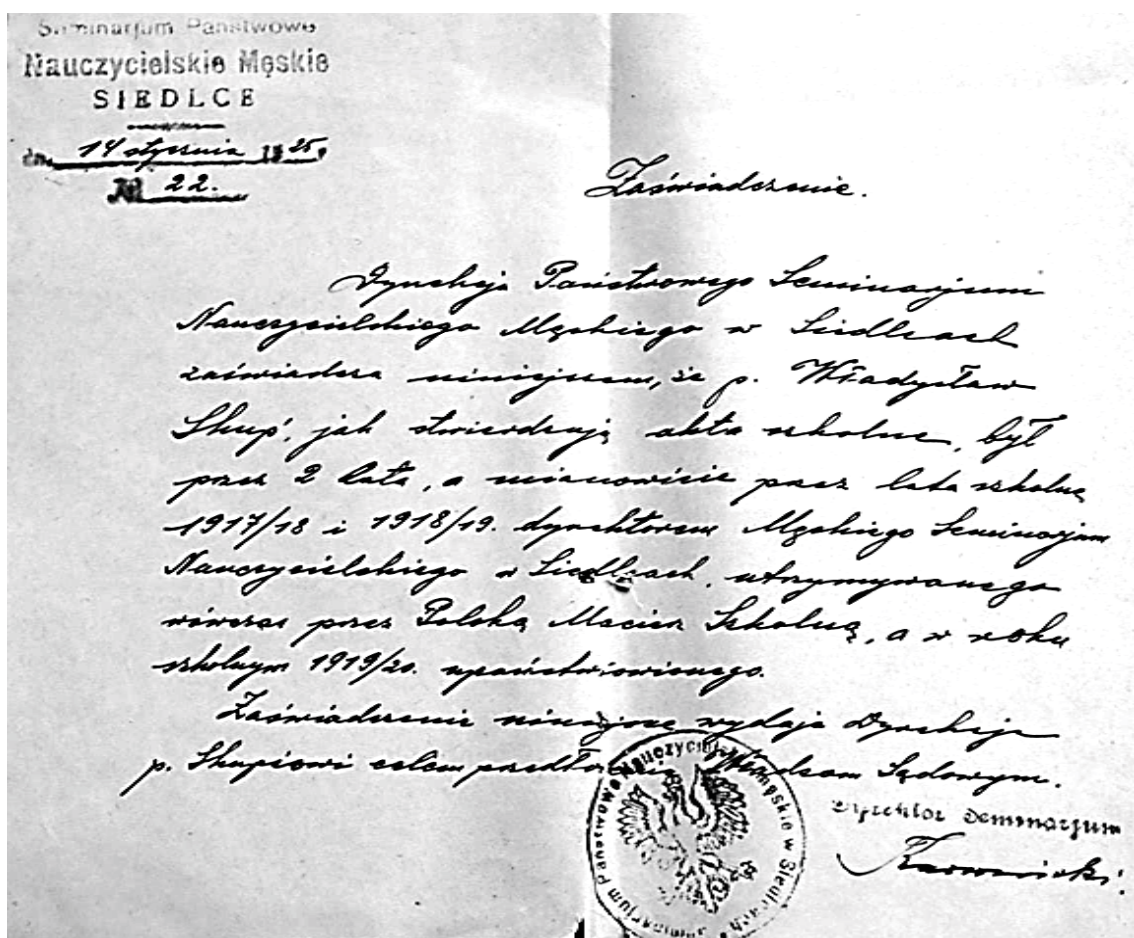 Seminarjum Państwowe
Nauczycielskie Męskie
SIEDLCE
dn. 14 stycznia 1925 r.
№ 22.
Zaświadczenie.
Dyrekcja Państwowego Seminarjum
Nauczycielskiego Męskiego w Siedlcach
zaświadcza niniejszem, że p. Władysław
Skup', jak stwierdzają akta szkolne, był
przez 2 lata, a mianowicie przez lata szkolne
1917/18 i 1918/19. dyrektorem Męskiego Seminarjum
Nauczycielskiego w Siedlcach, utrzymywanego
wówczas przez Polską Macierz Szkolną, a w roku
szkolnym 1919/20. upaństwowionego.
Zaświadczenie niniejsze wydaje Dyrekcja
p. Skupiowi celem przedłożenia Władzom Sądowym.
Dyrektor Seminarjum
Seminarjum Państwowe Nauczycielskie Męskie w Siedlcach